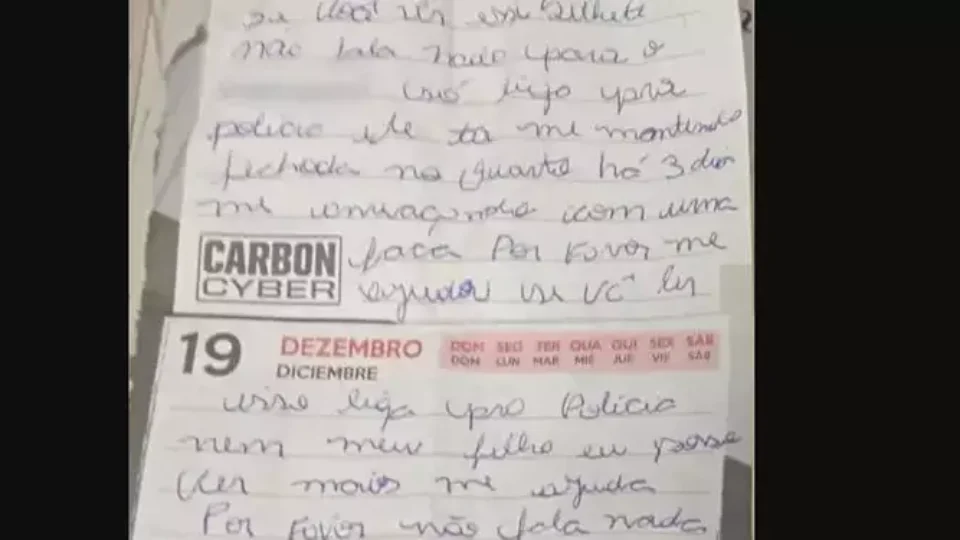 se você ler esse bilhete
não fala nada para o
liga para
policia ele ta me mantendo
fechada no quarto há 3 dias
me com uma
CARBON CYBER
faca Por Favor me
ajudar se vc ler
19 DEZEMBRO DOM SEG TER QUA QUI SEX SÁB
DICIEMBRE DOM LUN MAR MIÉ JUE VIE SÁB
isso liga pra Policia
nem meu filho eu posso
ver mais me ajuda
Por Favor não fala nada